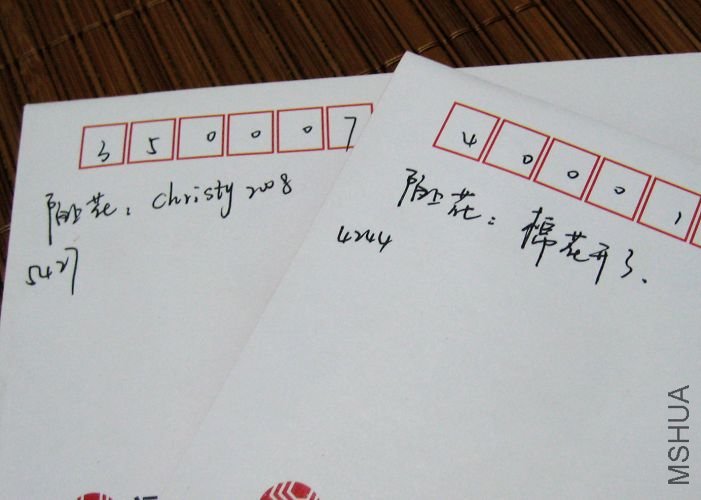 350007
陌上花：Christy2008
5427
40001
陌上花：棉花开了.
4244
MSHUA